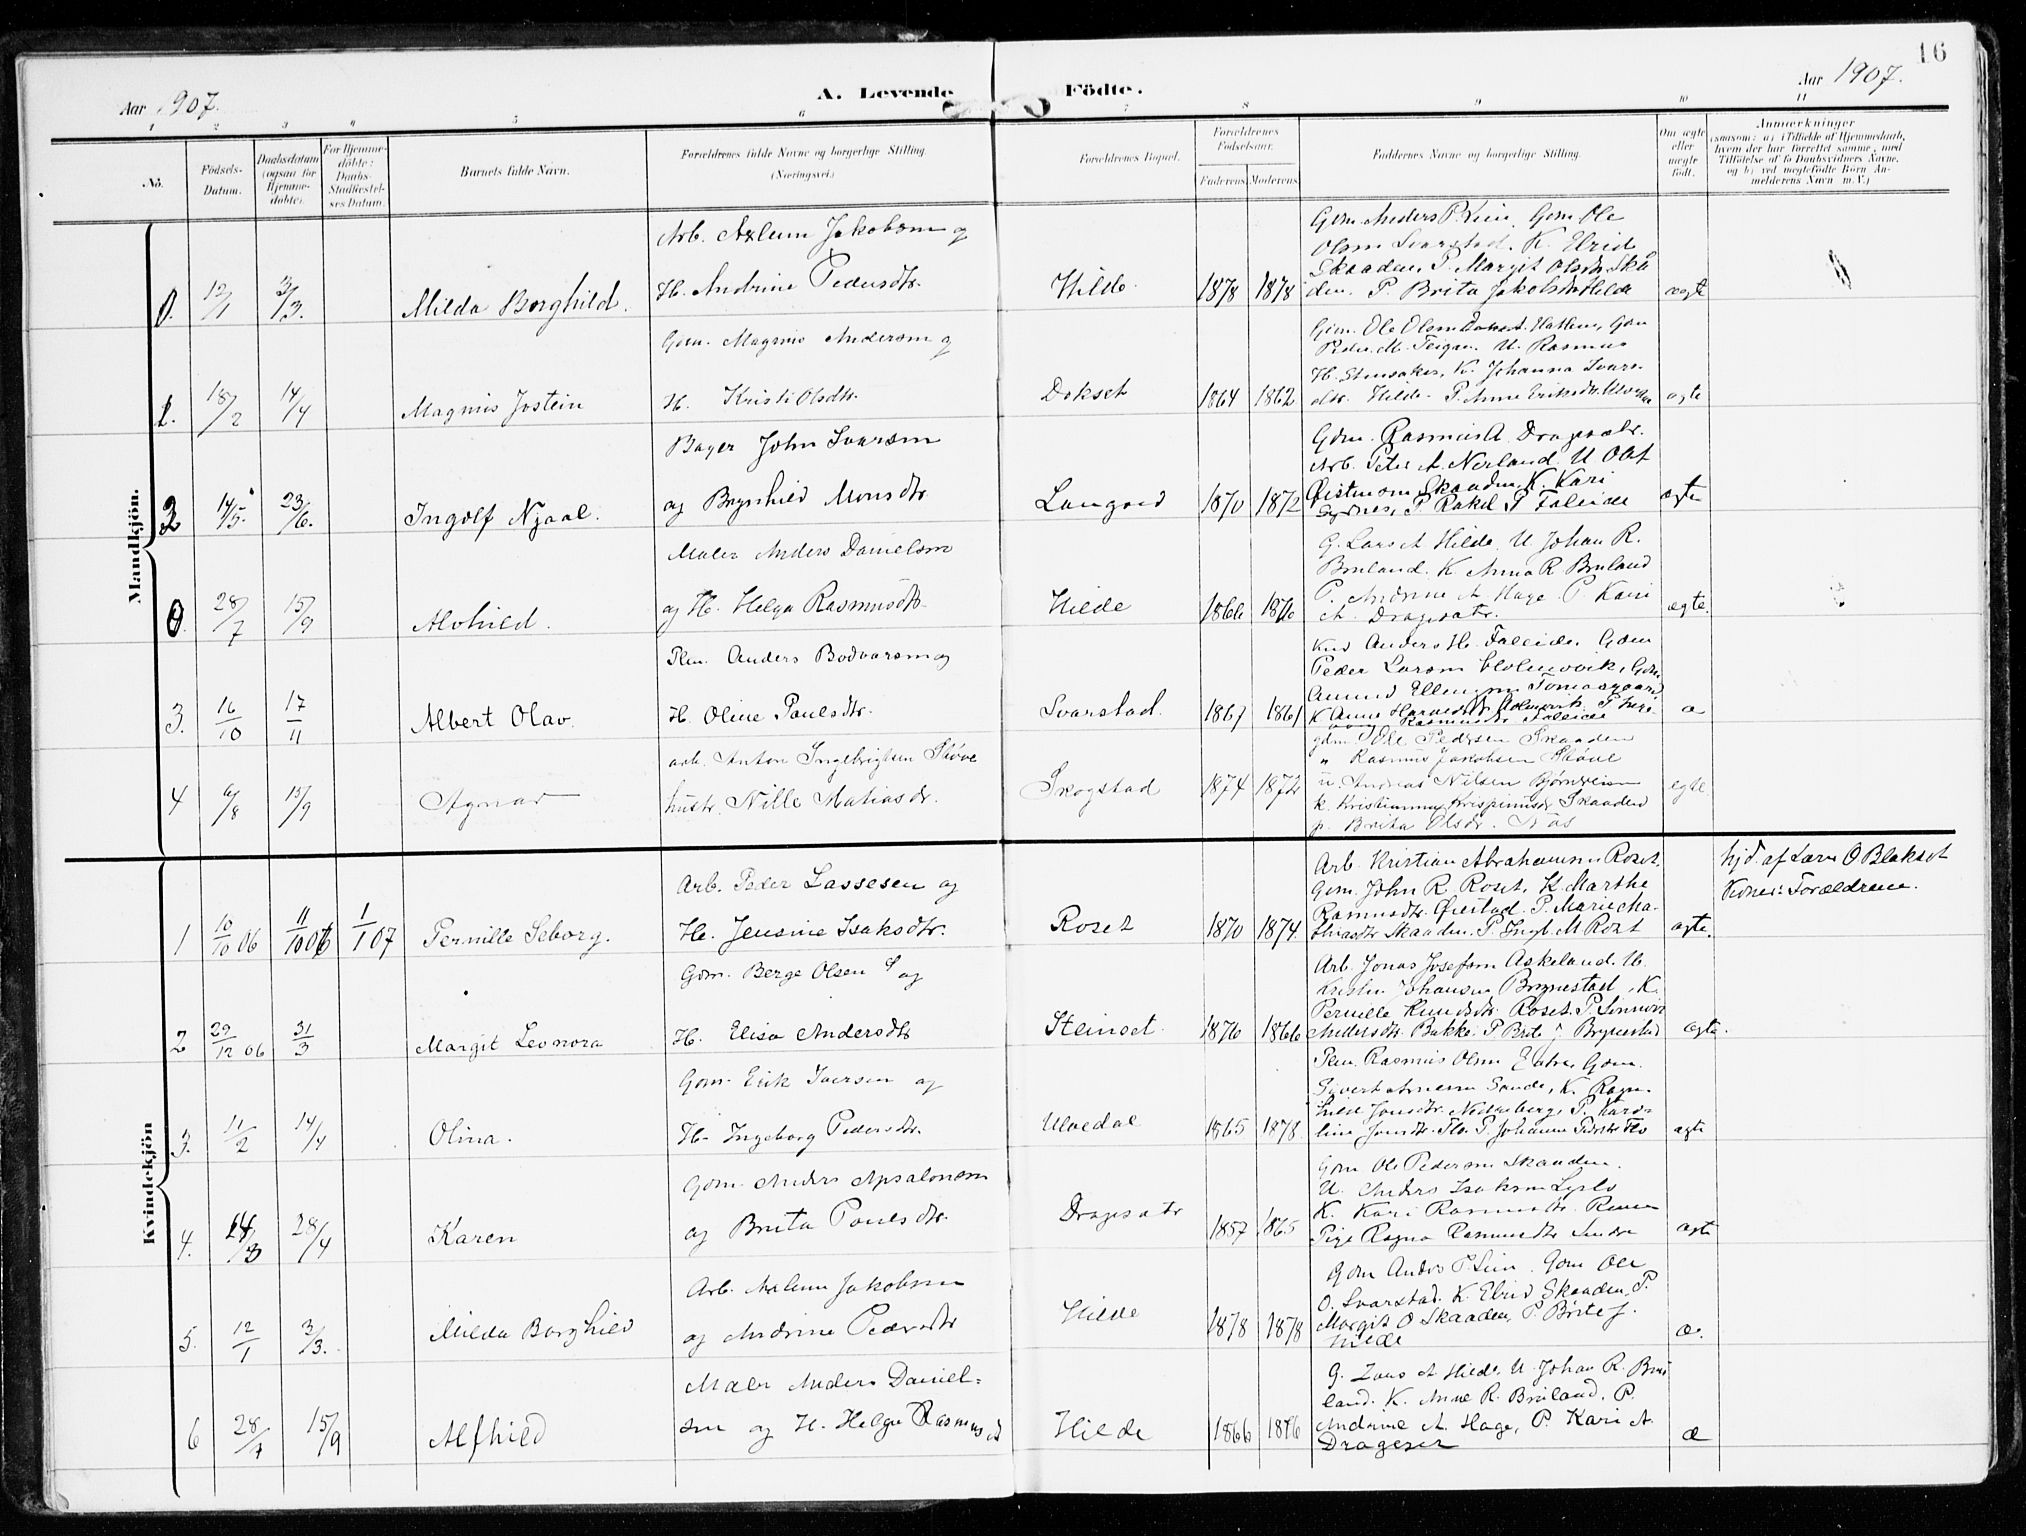 16
Aar 1907.
A. Levende Födte.
Aar 1907.
1 2 3 4 5 6 7 8 9 10 11
No.
Födsels-
Datum.
Daabsdatum
(ogsaa for
Hjemme-
döbte).
For Hjemme-
döbte:
Daabs-
Stadfæstel-
ses Datum.
Barnets fulde Navn.
Forældrenes fulde Navne og borgerlige Stilling.
(Næringsvei.)
Forældrenes Bopæl.
Forældrenes
Födselsaar.
Faderens Moderens
Faddernes Navne og borgerlige Stilling.
Om ægte
eller
uægte
födt.
Anmærkninger
(saasom: a) i Tilfælde af Hjemmedaab,
hvem der har forrettet samme, med
Tilföielse af to Daabsvidners Navne,
og b) ved uægtefödte Börn An-
melderens Navn m. V.)
Mandkjön.
0. 12/1 3/3. Milda Borghild.
Arb. Axlum Jakobsen og
H. Andrine Pedersdtr.
Hilde. 1878 1878
Gom. Anders P. Lein, Gom Ole
Olsen Svarstad. K. Elrid
Skaaden, P. Margit Olsdtr Skå
den. P. Brita Jakobsdtr Hilde
ægte
18/2 14/4 Magnus Jostein
Gom. Magnus Andersen og
H. Kristi Olsdtr.
Dokset 1864 1862
Peder M. Teigen. U. Rasmus
H. Stensaker, K. Johanna Ivars-
dtr. Hilde. P. Anne Eriksdtr.
ægte
2 14/5 23/6. Ingolf Njaal.
Bager John Ivarsen
og Brynhild Monsdtr.
Langvid 1870 1872
Gdm. Rasmus A. Dragesætr.
Arb. Peter A. Nerland. U Olaf
Øistensen Skaaden, K. Kari
P Rakel P Faleide
ægte
0. 28/7 15/9 Alvhild.
Maler Anders Danielsen
og H. Helga Rasmusdtr.
Hilde 1866 1876
G. Lars A Hilde. U Johan R.
Bruland. K Anna R Bruland
P. Andrine A Hage. P. Kari
A. Dragesætr.
ægte.
3. 16/10 17/11 Albert Olav.
Plm. Anders Bodvarsen og
H. Oline Paulsdtr.
Svarstad. 1867 1861
Anders H. Faleide. Gdm
Peder Larsen Holmevik, Gdm
Amund Ellingsen Tomasgaard,
K Anne Haraldsdtr Holmevik. P.
Rasmusdtr Faleide
æ
4 6/8 15/9 Agnar
arb. Anton Ingebrigtsen Støve
hustr. Nille Matiasdr.
Skogstad 1874 1872
gdm. Ole Pedersen Skaaden
" Rasmus Jakobsen Støve
u. Andreas Nilsen Bjørnheim
k. Kristianna Krispinusdr Skaaden
p. Brita Olsdr. Nos
egte
Kvindekjön
1 10/10 06 11/10 06 1/1 07 Pernille Seborg.
Arb. Peder Lassesen og
H. Jensine Isaksdtr.
Roset 1870 1874.
Arb. Kristian Abrahamsen Roset.
Gom. John R. Roset, K. Marthe
Rasmusdtr. Øvestad. P. Marie Ma-
thiasdtr Skaaden. P Ingb. M Roset
ægte.
hjd. af Lærer O Blakset
Vidner: Forældrene.
2 29/12 06 31/3 Margit Leonora
Gdm. Berge Olsen S og
H. Elisa Andersdtr
Steinset. 1876 1866
Arb. Jonas Josefsen Askeland. U.
Kristen Johansen Brynestad, K.
Pernille Knudsdtr. Roset. P. Sennvor
Andersdtr. Bakke P Brite Brynestad
ægte.
3. 11/2 14/4 Olina.
Gom. Erik Iversen og
H. Ingeborg Pedersdtr.
Ulvedal 1865 1878.
Plm Rasmus Olsen Gdm.
Sivert Arnesen Sande, K. Ragn-
hild Jonsdtr. Nedreberg, P. Karo-
line Jonsdtr. Flo. P Johanne Pedersdtr Flo
ægte
4. 14/3 28/4 Karen
Gom. Anders Apsalonsen
og Brita Paulsdtr.
Dragesætr 1857 1865
Gom Ole Pedersen Skaaden.
U. Anders Isaksen
K. Kari Rasmusdtr.
Pige Ragna Rasmusdtr
ægte
5. 12/1 3/3. Milda Borghild
Arb. Axlum Jakobsen
og Andrine Pedersdtr
Hilde 1878 1878
Gdm Anders P. Lein. Gdm Ole
O. Svarstad. K. Elrid Skaaden, P.
Margit O Skaaden, P. Brite J.
Hilde
æ.
6 28/7 15/9 Alfhild
Maler Anders Daniel-
sen og H. Helga Rasmusd
Hilde 1866 1876
G. Lars A Hilde. U. Johan R. Bru
land. K. Anne R. Bruland. P.
Andrine A. Hage, P. Kari A.
Drageset
æ